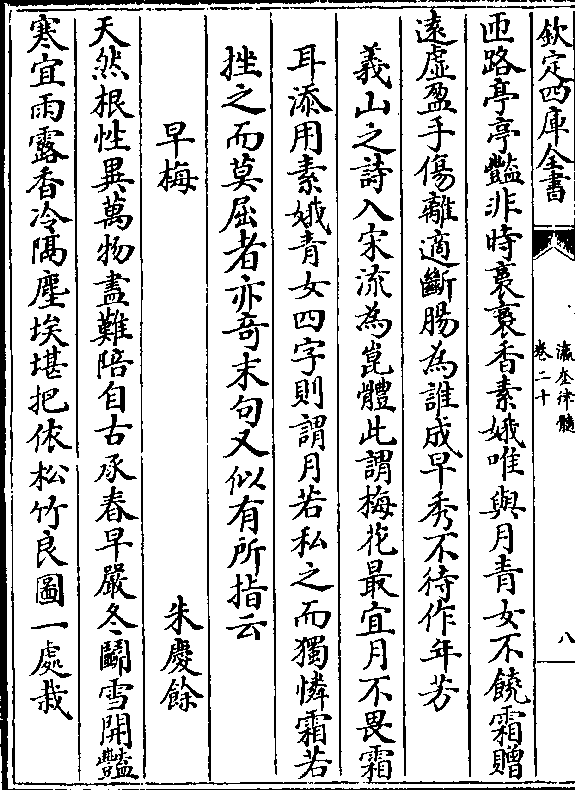 欽定四庫全書
瀛奎律髓
卷二十
八
匝路亭亭豔非時裛裛香素娥唯與月青女不饒霜贈
遠虛盈手傷離適斷腸為誰成早秀不待作年芳
義山之詩入宋流為崑體此謂梅花最宜月不畏霜
耳添用素娥青女四字則謂月若私之而獨憐霜若
挫之而莫屈者亦奇末句又似有所指云
早梅
朱慶餘
天然根性異萬物盡難陪自古承春早嚴冬鬭雪開豔
寒宜雨露香冷隔塵埃堪把依松竹良圖一處栽